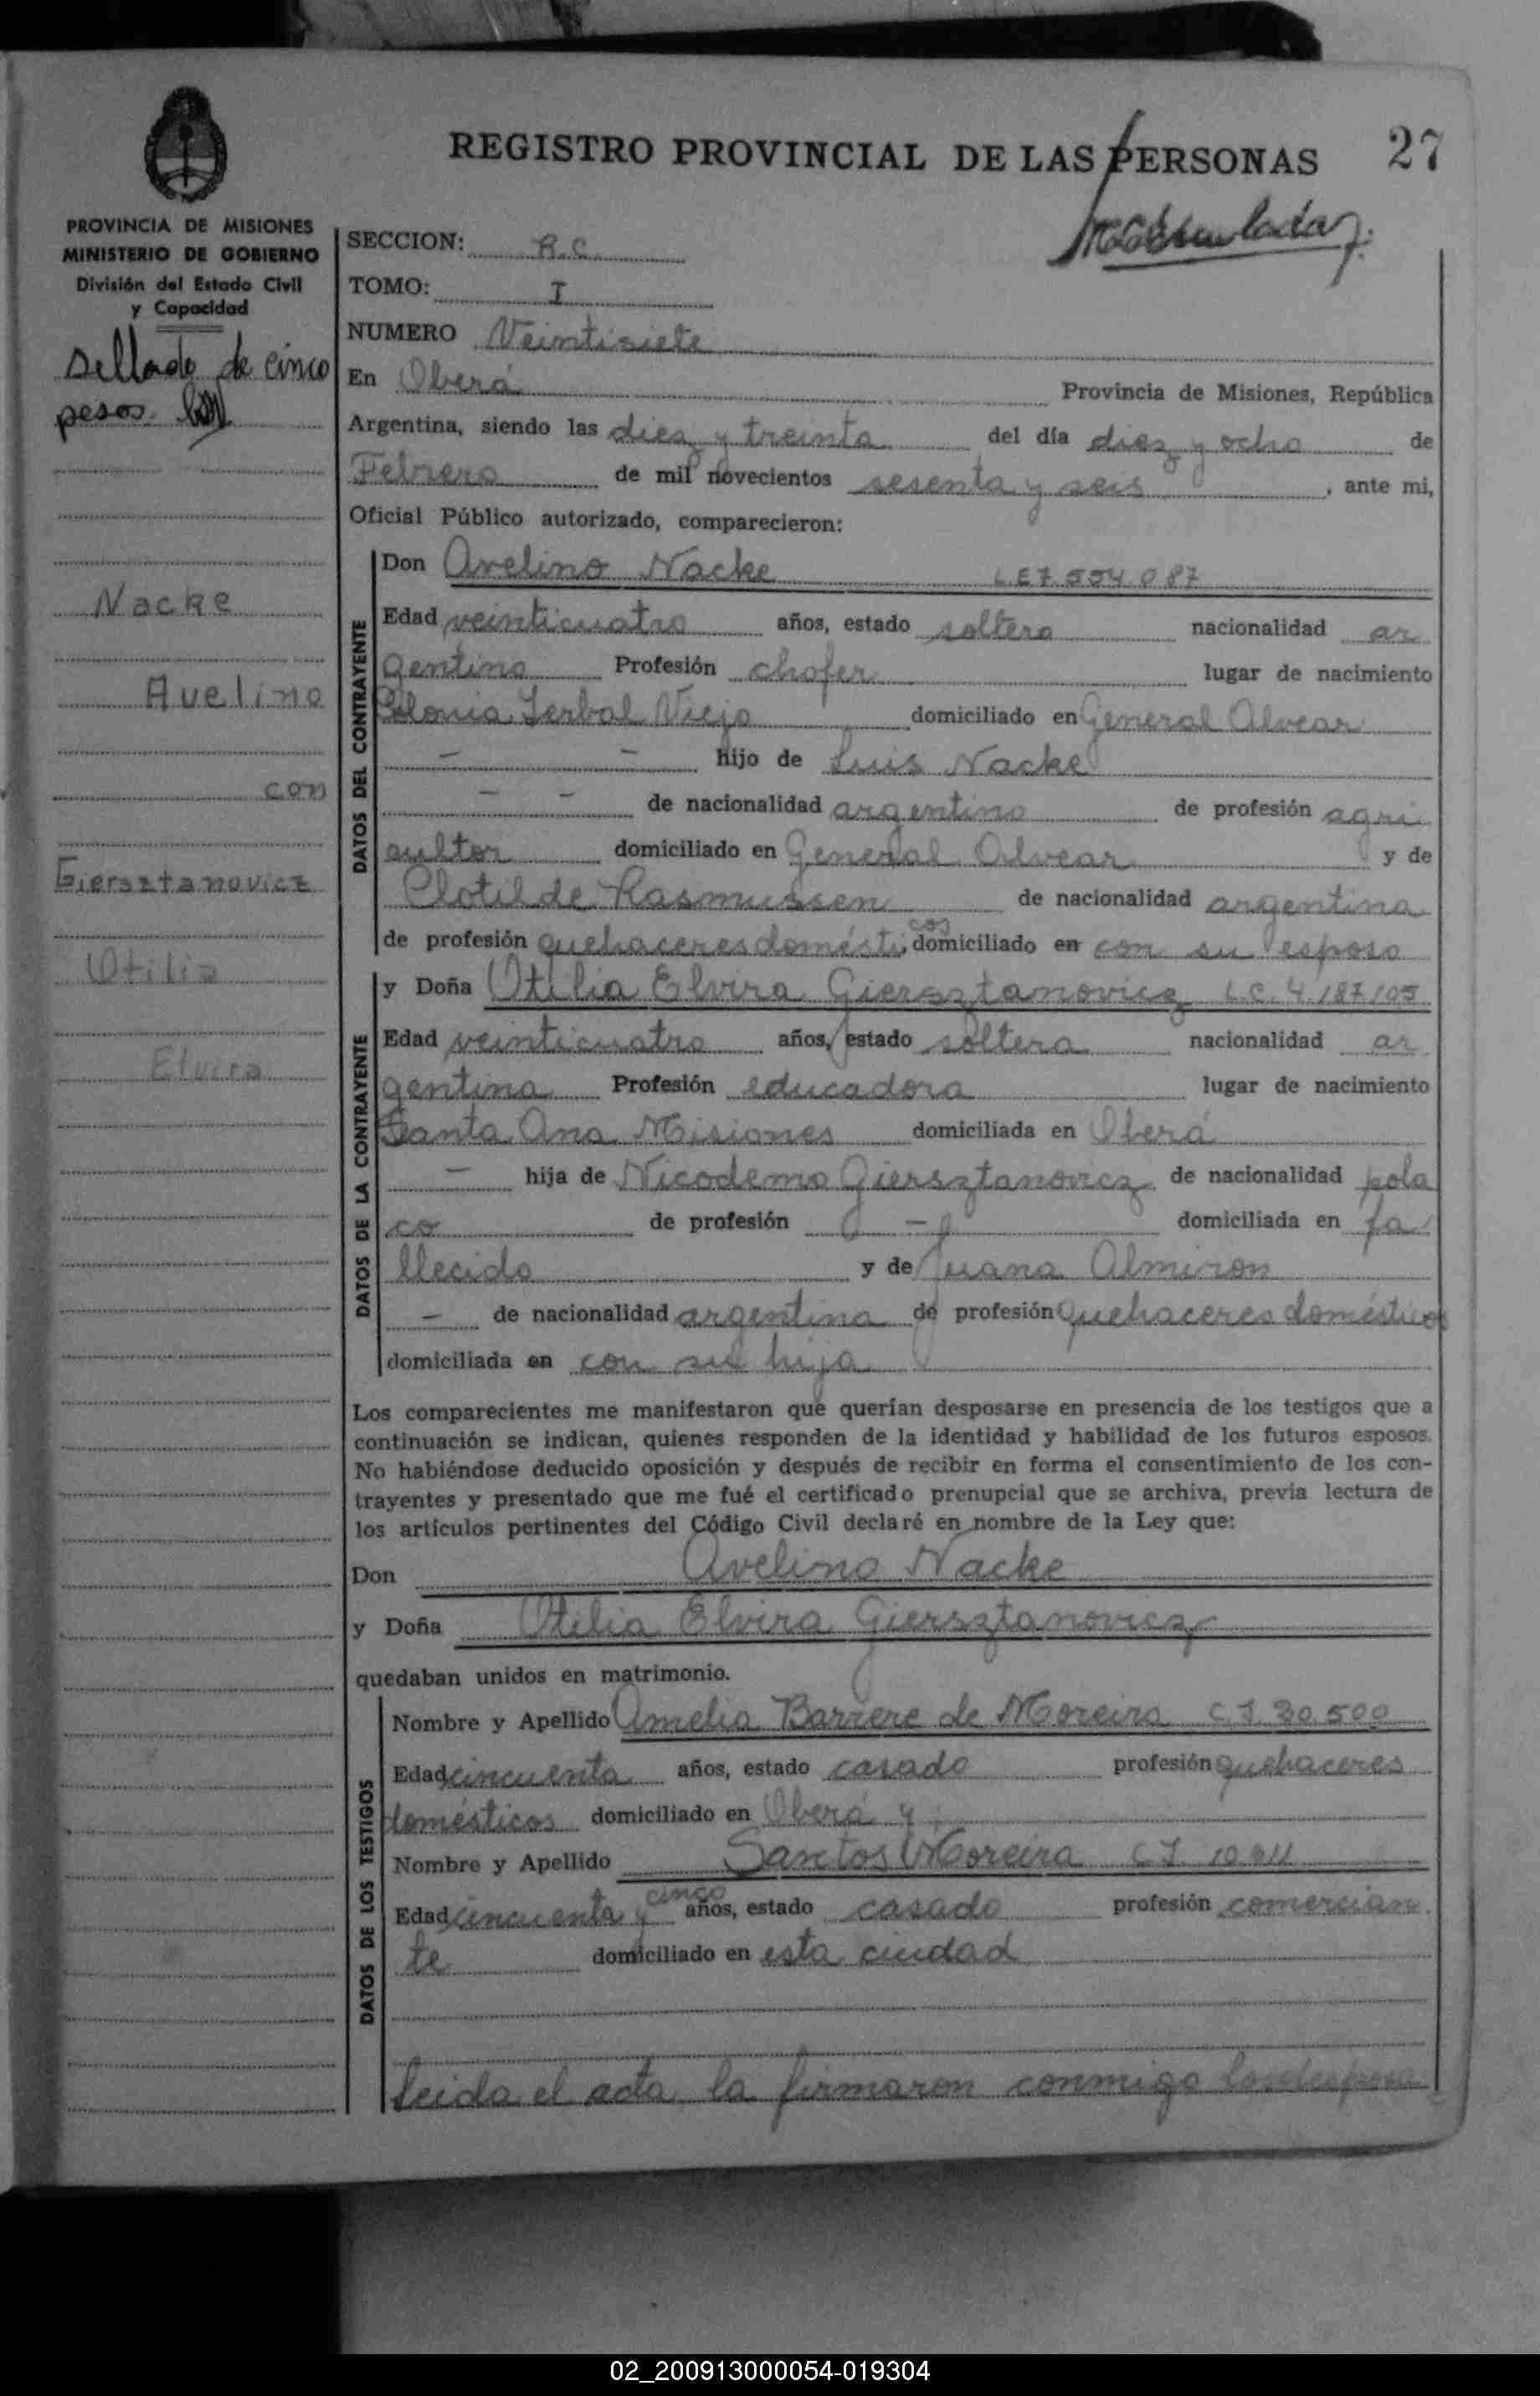 REGISTRO PROVINCIAL DE LAS PERSONAS 27
PROVINCIA DE MISIONES
MINISTERIO DE GOBIERNO
División del Estado Civil
y Capacidad
Sellado de cinco
pesos.
Nacke
Avelino
con
Giersztanovicz
Otilia
Elvira
SECCION: R.C.
TOMO: I
NUMERO Veintisiete
En Oberá Provincia de Misiones, República
Argentina, siendo las diez y treinta del día diez y ocho de
Febrero de mil novecientos sesenta y seis, ante mi,
Oficial Público autorizado, comparecieron:
DATOS DEL CONTRAYENTE
Don Avelino Nacke L E 7.554.087
Edad veinticuatro años, estado soltero nacionalidad ar
gentino Profesión chofer lugar de nacimiento
Colonia Yerbal Viejo domiciliado en General Alvear
— — hijo de Luis Nacke
— — de nacionalidad argentino de profesión agri
cultor domiciliado en General Alvear y de
Clotilde Rasmussen de nacionalidad argentina
de profesión quehaceres domésticos domiciliado en con su esposo
DATOS DE LA CONTRAYENTE
y Doña Otilia Elvira Giersztanovicz L.C. 4.187.105
Edad veinticuatro años, estado soltera nacionalidad ar
gentina Profesión educadora lugar de nacimiento
Santa Ana Misiones domiciliada en Oberá
— hija de Nicodemo Giersztanovicz de nacionalidad pola
co de profesión — domiciliada en fa
llecido y de Juana Almiron
— de nacionalidad argentina de profesión quehaceres domésticos
domiciliada en con su hija
Los comparecientes me manifestaron que querían desposarse en presencia de los testigos que a
continuación se indican, quienes responden de la identidad y habilidad de los futuros esposos.
No habiéndose deducido oposición y después de recibir en forma el consentimiento de los con-
trayentes y presentado que me fué el certificado prenupcial que se archiva, previa lectura de
los artículos pertinentes del Código Civil declaré en nombre de la Ley que:
Don Avelino Nacke
y Doña Otilia Elvira Giersztanovicz
quedaban unidos en matrimonio.
DATOS DE LOS TESTIGOS
Nombre y Apellido Amelia Barrere de Moreira C I. 30.500
Edad cincuenta años, estado casado profesión quehaceres
domésticos domiciliado en Oberá y
Nombre y Apellido Santos Moreira C I.
Edad cincuenta y cinco años, estado casado profesión comercian
te domiciliado en esta ciudad
Leida el acta la firmaron conmigo los desposa
02_200913000054-019304